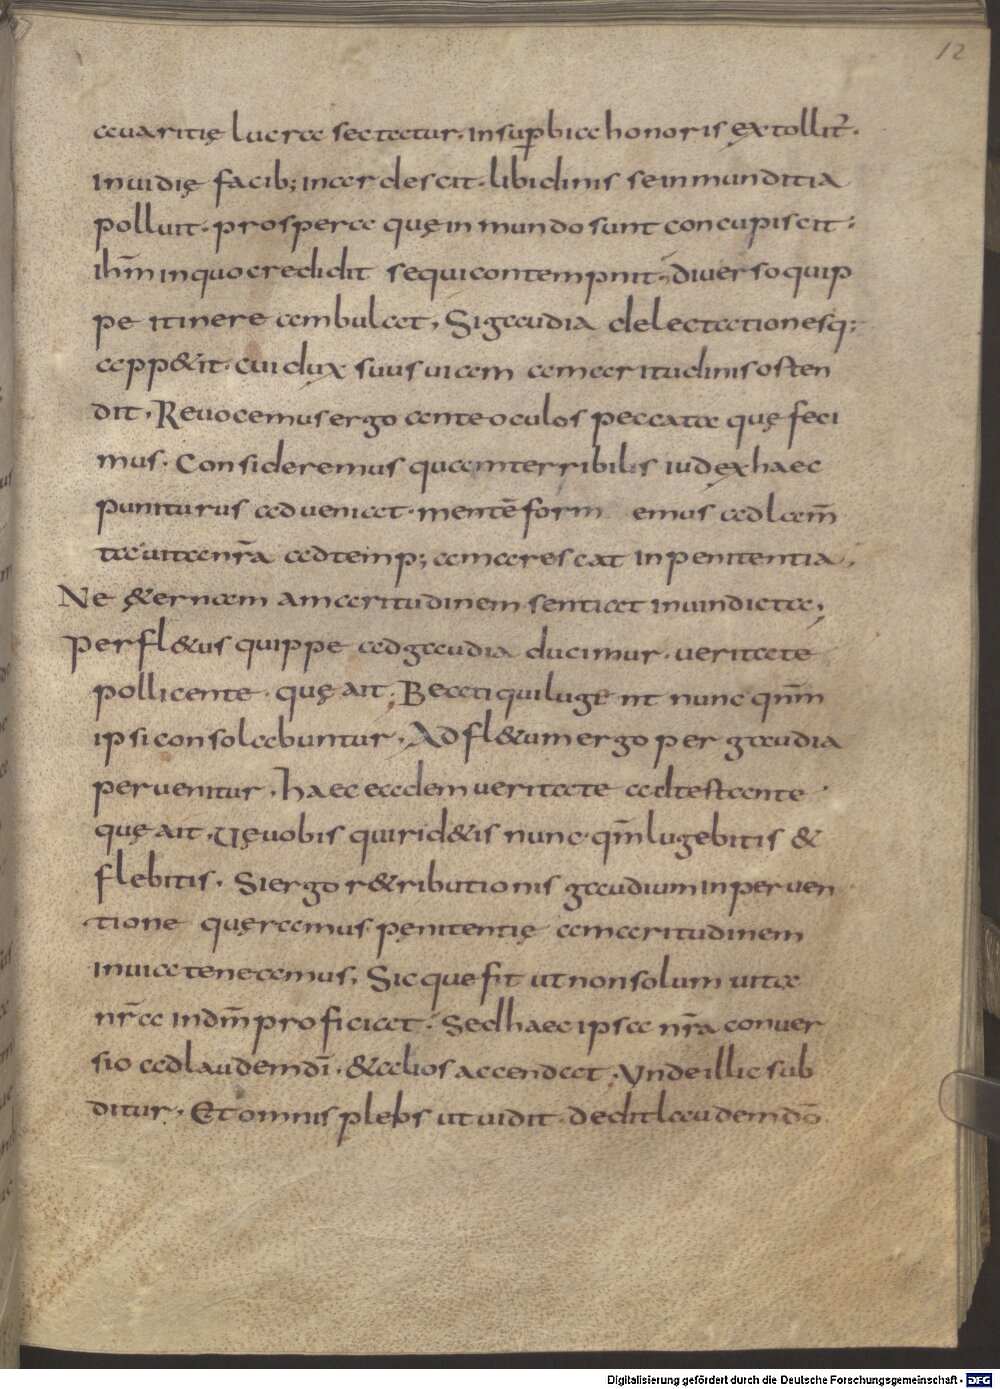 12
auaritię lucra sectatur · insuꝑbia honoris extollit̃ ·
inuidię facib; inardescit · libidinis se inmunditia
polluit · prospera quę in mundo sunt concupiscit ·
ih̄m in quo credidit sequi contempnit · diuerso quip
pe itinere ambulat · Si gaudia delectationesq;
app&it · cui dux suus uiam amaritudinis osten
dit · Reuocemus ergo ante oculos peccata quę feci
mus · Consideremus quam terribilis iudex haec
puniturus adueniat · mentē form emus ad lam̄
ta uita nr̄a ad temp; amarescat in penitentia ·
Ne &ernam amaritudinem sentiat in uindicta ·
Per fl&us quippe ad gaudia ducimur · ueritate
pollicente · quę ait · Beati qui lugent nunc qn̄m
ipsi consolabuntur · Ad fl&um ergo per gaudia
peruenitur · haec eadem ueritate adtestante ·
quę ait · Uę uobis qui rid&is nunc · qm̄ lugebitis &
flebitis · Si ergo r&ributionis gaudium in peruen
tione quęramus pęnitentię amaritudinem
in uia teneamus · Sicque fit ut non solum uita
nr̄a in dm̄ proficiat · Sed haec ipsa nr̄a conuer
sio ad laudem dī · & alios accendat · Unde illic sub
ditur · Et omnis plebs ut uidit dedit laudem dō
Digitalisierung gefördert durch die Deutsche Forschungsgemeinschaft - DFG